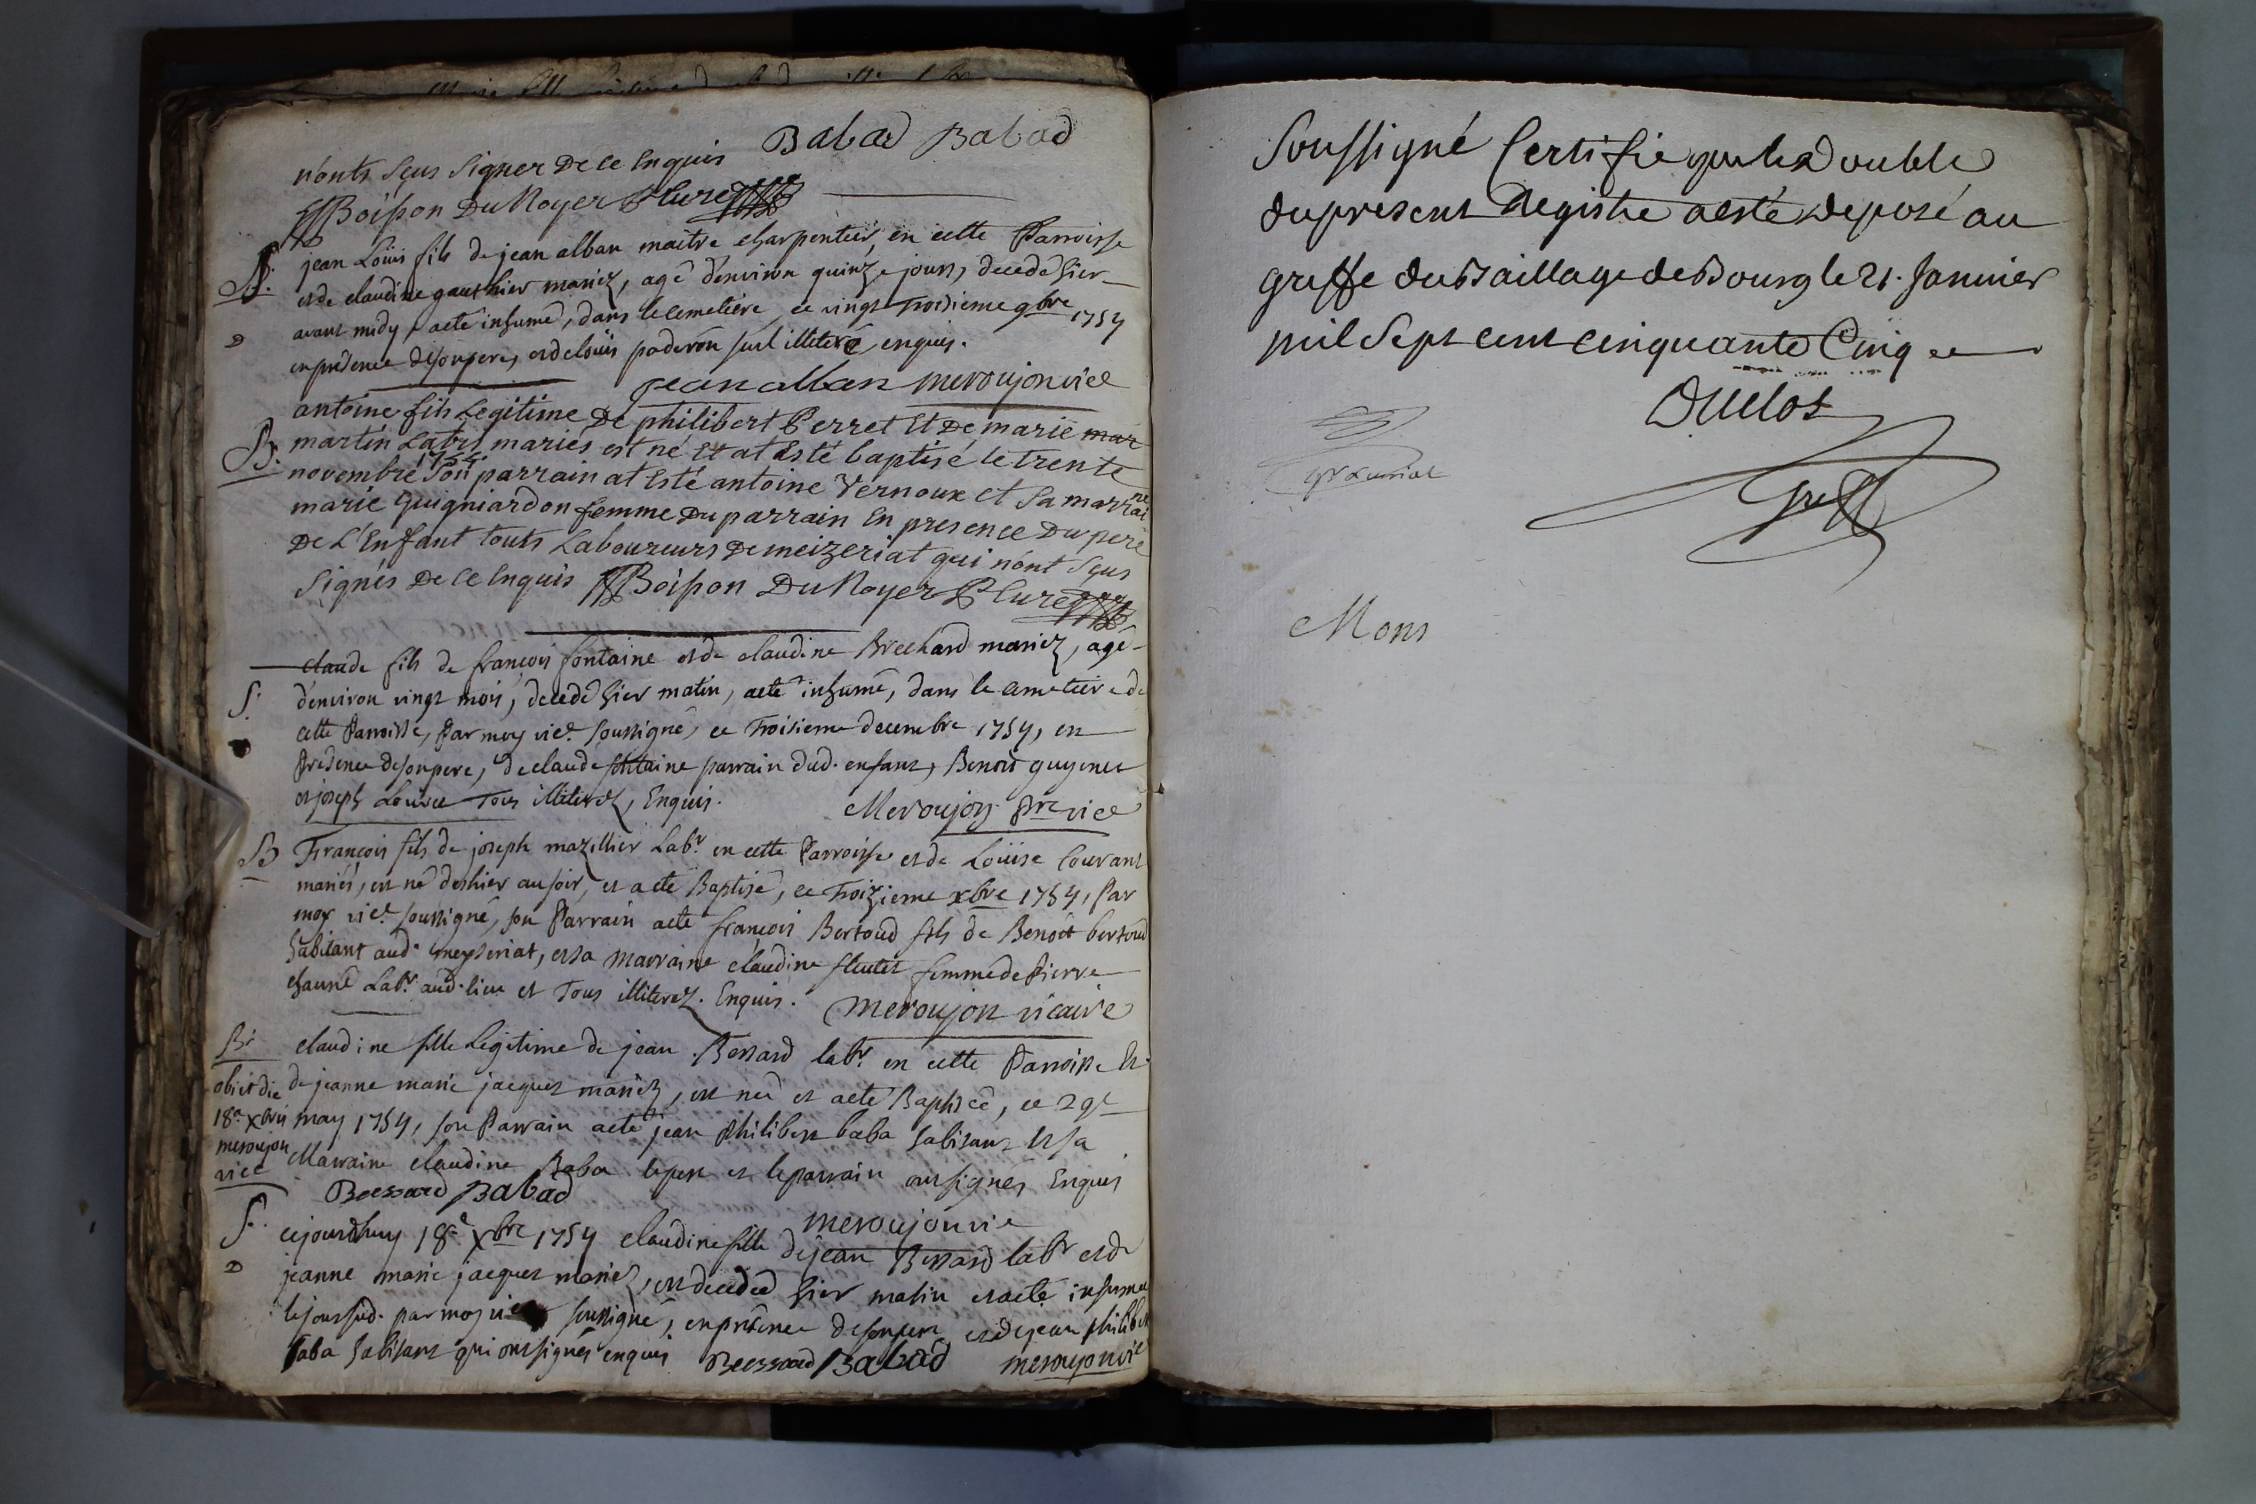 Babad Babad
n'onts sçus signer De ce Enquis
Boisson Du Noyer P Curé
S. jean Loüis fils de jean alban maitre charpentier, en cette Parroisse
et de claudine gauthier mariez, agé d'environ quinze jours, decedé hier
avant midy a eté inhumé, dans le cemetière, ce vingt troisieme 9bre 1754
D
en presence de son pere, et de loüis paderon seul illiteré enquis.
jean alban meroujon vice
antoine fils Legitime De philibert Perret Et De marie mar
B. martin Labrs mariés est né Et at Esté baptisé le trente
novembre 1754. Son parrain at Esté antoine Vernoux et Sa marrai ne
marie guigniardon femme Du parrain En presence Du pere
De L'Enfant touts Laboureurs De meizeriat qui n'ont Sçus
Signés De ce Enquis Boisson Du Noyer P Curé
claude fils de françois fontaine et de claudine Brechard mariez, agé
S. d'environ vingt mois, decedé hier matin, a eté inhumé, dans le cimetiere de
cette Parroisse, Par moy vice. soussigné, ce troisieme decembre 1754, en
Présence de son pere, de claude fontaine parrain dud. enfant, Benoit guyenet
et joseph Louvet Tous illiterez, Enquis. Meroujon Pre vice
B François fils de joseph mazillier Labr. en cette Parroisse et de Loüise Couvant
mariés, est né d'eshier au soir, et a eté Baptisé, ce Troizieme xbre 1754, Par
moy vice. soussigné, son Parrain a eté françois Bertoud fils de Benoit bertoud
habitant aud. meyseriat, et sa marraine claudine fleutet femme de Pierre
chauné Labr. aud. lieu et Tous illiterez. Enquis. meroujon vicaire
B. claudine fille Légitime de jean Bessard labr. en cette Parroisse Et
obiit die de jeanne marie jacquet mariez, est neé et a eté Baptiseé, ce 29e
18a xbris may 1754, son Parrain a eté jean Philibert baba habitant Et sa
meroujon
vice Marraine claudine Baba le pere et le parrain ont signés Enquis
Beessard Babad
meroujon vice
S. cejourdhuy 18e Xbre 1754 claudine fille de jean Bessard labr et de
D jeanne marie jacquet mariez, est deceded hier matin et a eté inhumee
le jour sud. par moy vice soussigné, en présence de son pere et de jean philibert
baba habitant qui ont signés enquis Beessard Babad meroujon vice
Soussigné Certifie que le Double
du present Registre a esté deposé au
greffe du Baillage de Bourg le 21. Janvier
mil Sept cent cinquante Cinq
Duclos
Greff
Mons